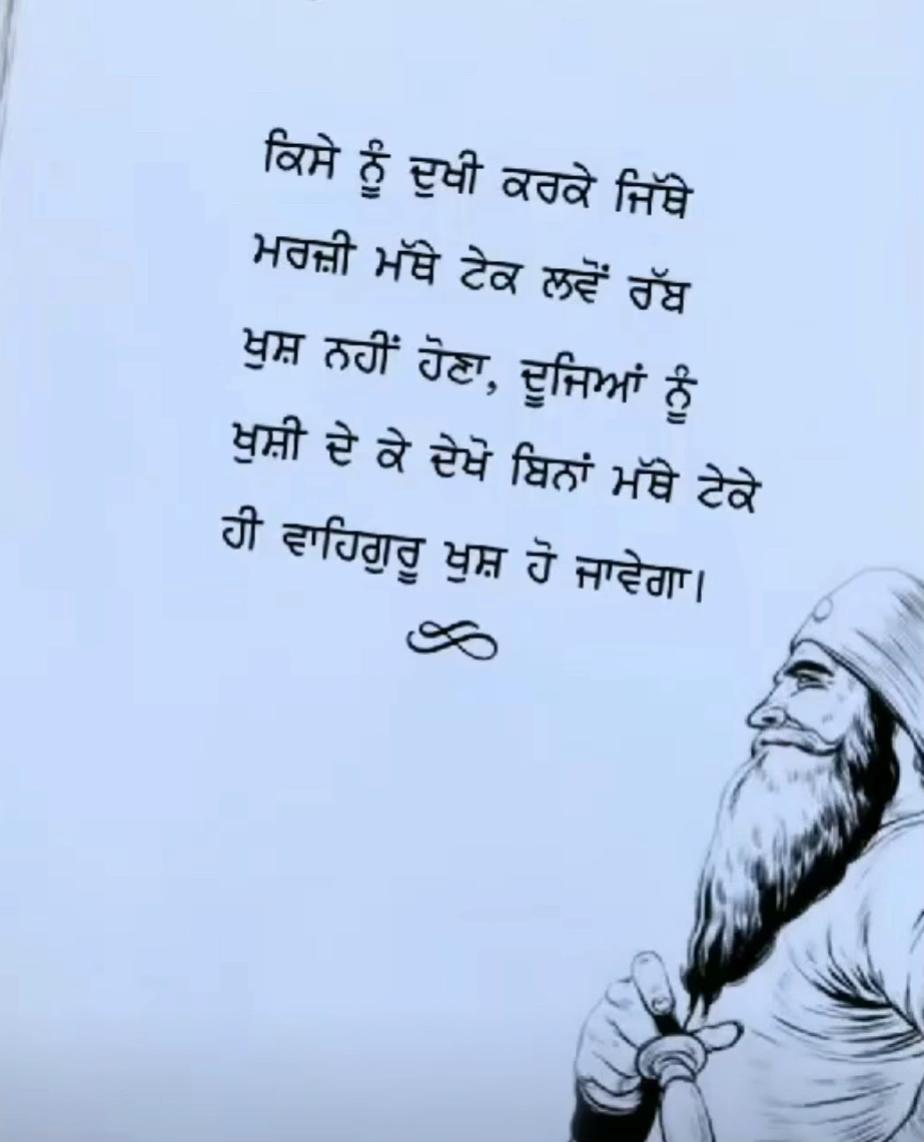 ਕਿਸੇ ਨੂੰ ਦੁਖੀ ਕਰਕੇ ਜਿੱਥੇ
ਮਰਜ਼ੀ ਮੱਥੇ ਟੇਕ ਲਵੋਂ ਰੱਬ
ਖੁਸ਼ ਨਹੀਂ ਹੋਣਾ, ਦੂਜਿਆਂ ਨੂੰ
ਖੁਸ਼ੀ ਦੇ ਕੇ ਦੇਖੋ ਬਿਨਾਂ ਮੱਥੇ ਟੇਕੇ
ਹੀ ਵਾਹਿਗੁਰੂ ਖੁਸ਼ ਹੋ ਜਾਵੇਗਾ।